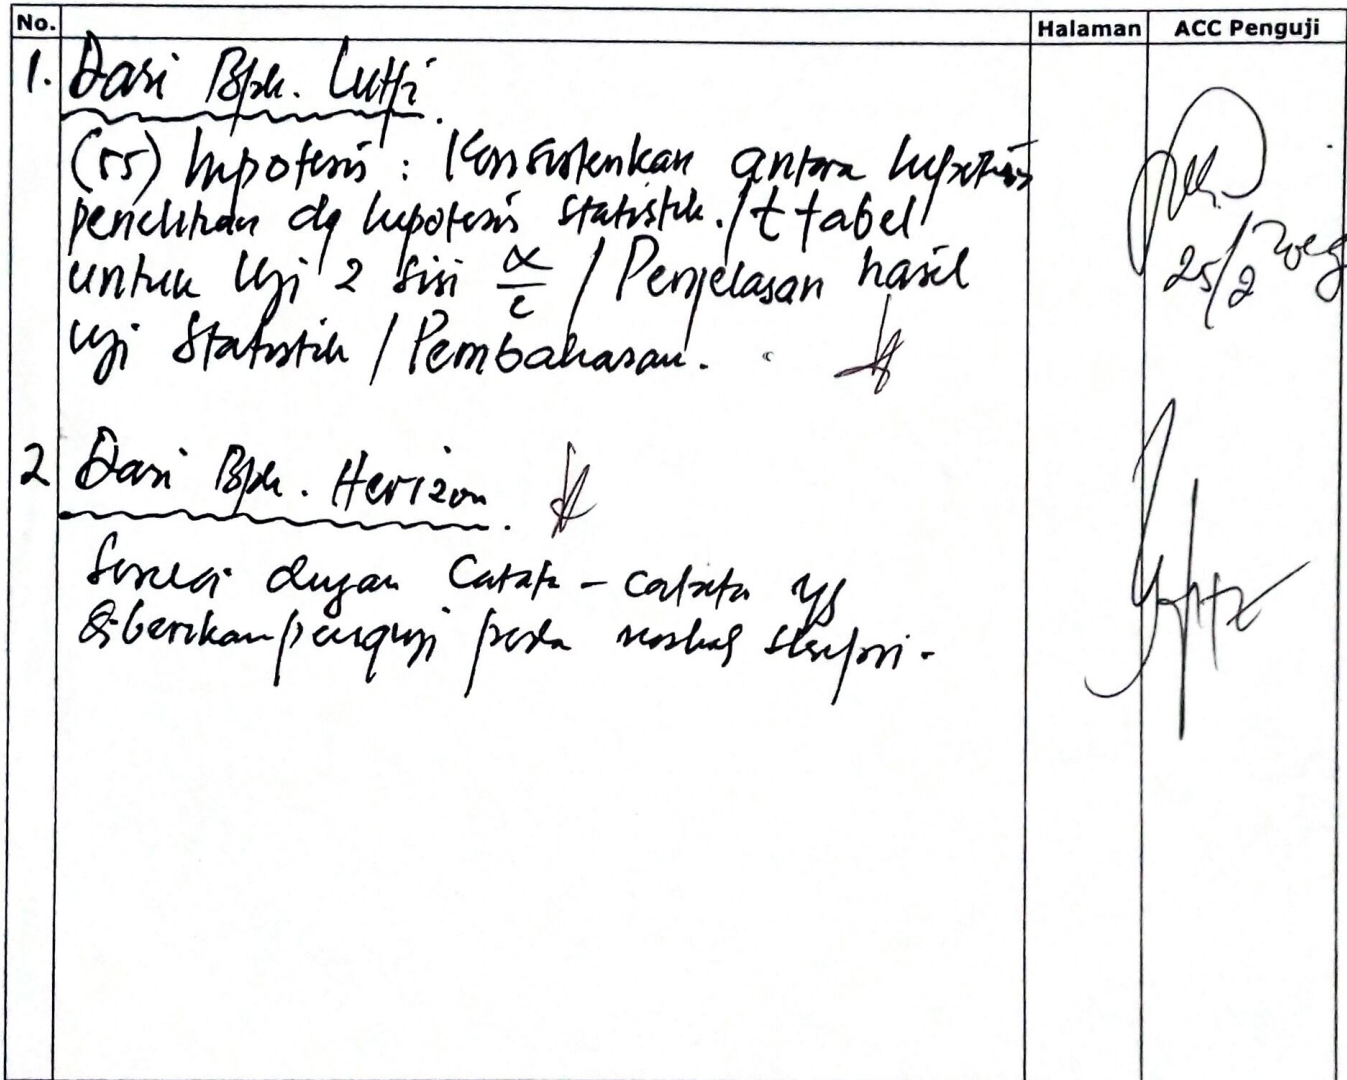 No. Halaman ACC Penguji
1. Dari Bpk. Lutfi.
(55) hipotesis : Konsistenkan antara hipotesis
penelitian dg hipotesis statistik. / t tabel
untuk Uji 2 sisi α/2 / Penjelasan hasil
uji Statistik / Pembahasan.
25/2
2 Dari Bpk. Herizon.
Sesuai dengan Catatan - catatan yg
diberikan penguji pada naskah skripsi.